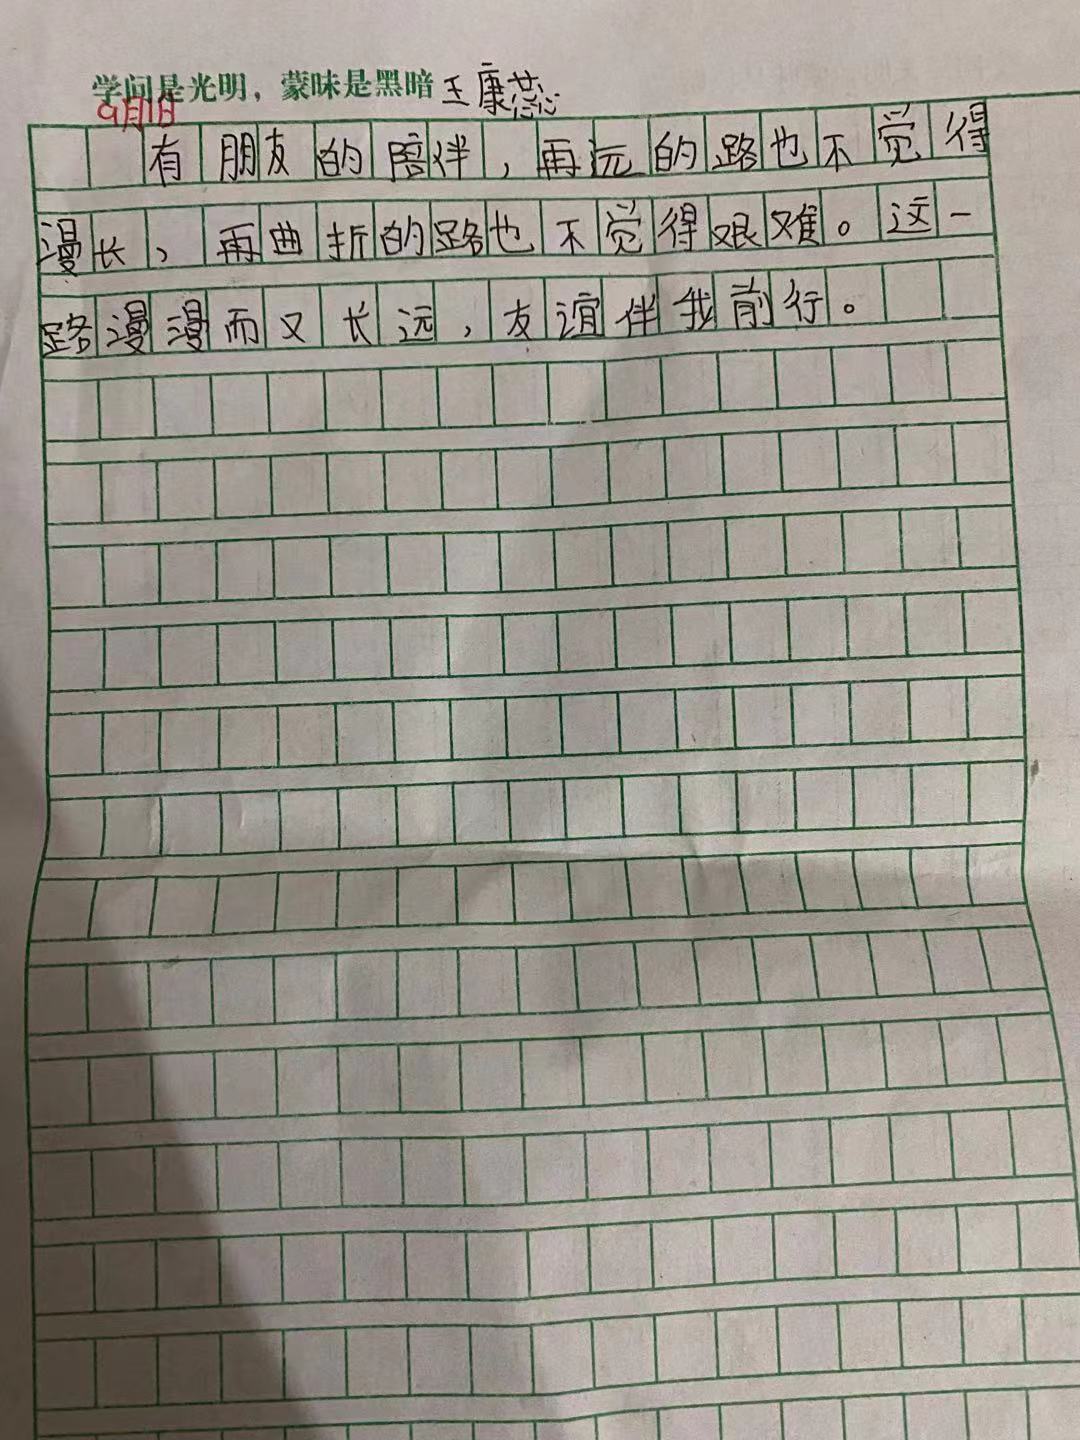 学问是光明，蒙昧是黑暗 王康蕊
9月1日
有朋友的陪伴，再远的路也不觉得
漫长，再曲折的路也不觉得艰难。这一
路漫漫而又长远，友谊伴我前行。